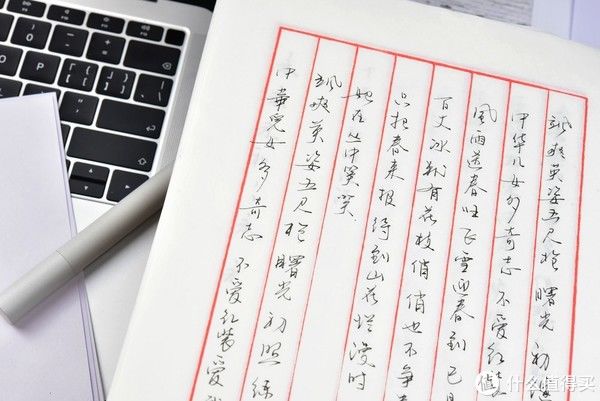 飒爽英姿五尺枪 曙光初
中华儿女多奇志 不爱红
风雨送春归 飞雪迎春到 已是
百丈冰 犹有花枝俏 俏也不争春
只把春来报 待到山花烂漫时
她在丛中笑笑
飒爽英姿五尺枪 曙光初照练
中華兒女多奇志 不爱红装爱
值 什么值得买